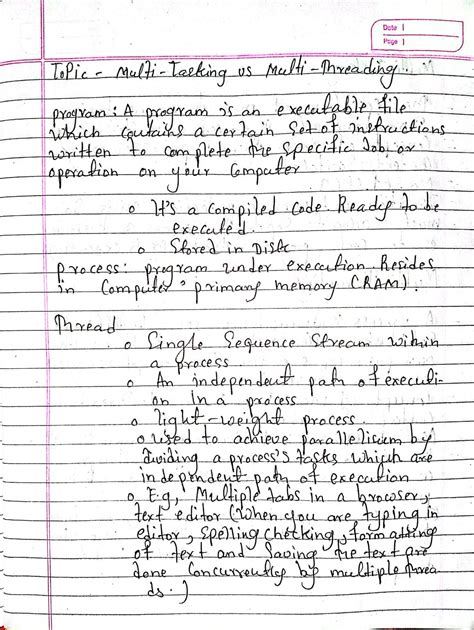 Date |
Page |
Topic - Multi-Tasking vs Multi-Threading
program: A program is an executable file
which contains a certain set of instructions
written to complete the specific Job or
operation on your Computer
o It's a compiled code. Ready to be
executed.
o Stored in Disk
process: program under execution Resides
in Computer's primary memory (RAM).
Thread
o Single Sequence Stream within
a process.
o An independent path of executi-
on In a process
o light-weight process
o used to achieve parallelism by
dividing a process's tasks which are
independent path of execution
o E.g, Multiple tabs in a browser,
text editor (When you are typing in
editor, spelling checking, formatting
of text and Saving the text are
done Concurrently by multiple threa
ds.)